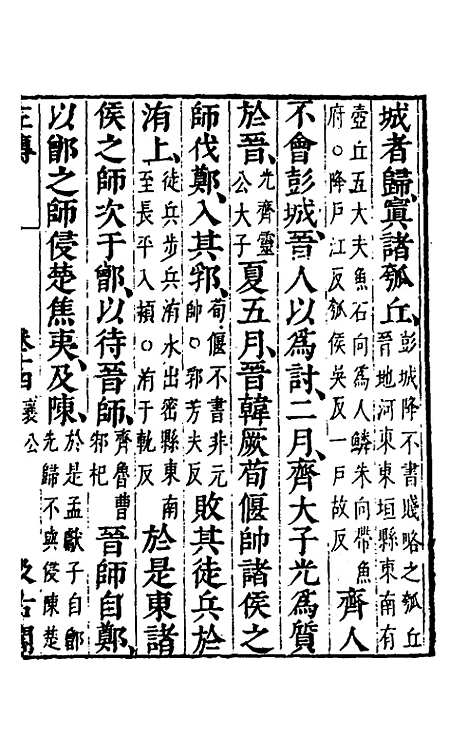 城者歸寘諸瓠丘彭城降不書賤略之瓠丘晉地河東東垣縣東南有
壺丘五大夫魚石向爲人鱗朱向帶魚府○降戶江反瓠侯吳反一戶故反齊人
不會彭城晉人以爲討二月齊大子光爲質
於晉光齊靈公大子夏五月晉韓厥荀偃帥諸侯之
師伐鄭入其郛荀偃不書非元帥○郛芳夫反敗其徒兵於
洧上徒兵步兵洧水出密縣東南至長平入潁○洧于軌反於是東諸
侯之師次于鄫以待晉師齊魯曹邾杞晉師自鄭
以鄫之師侵楚焦夷及陳於是孟獻子自鄫先歸不與侵陳楚
左傳 卷十四 襄公 汲古閣